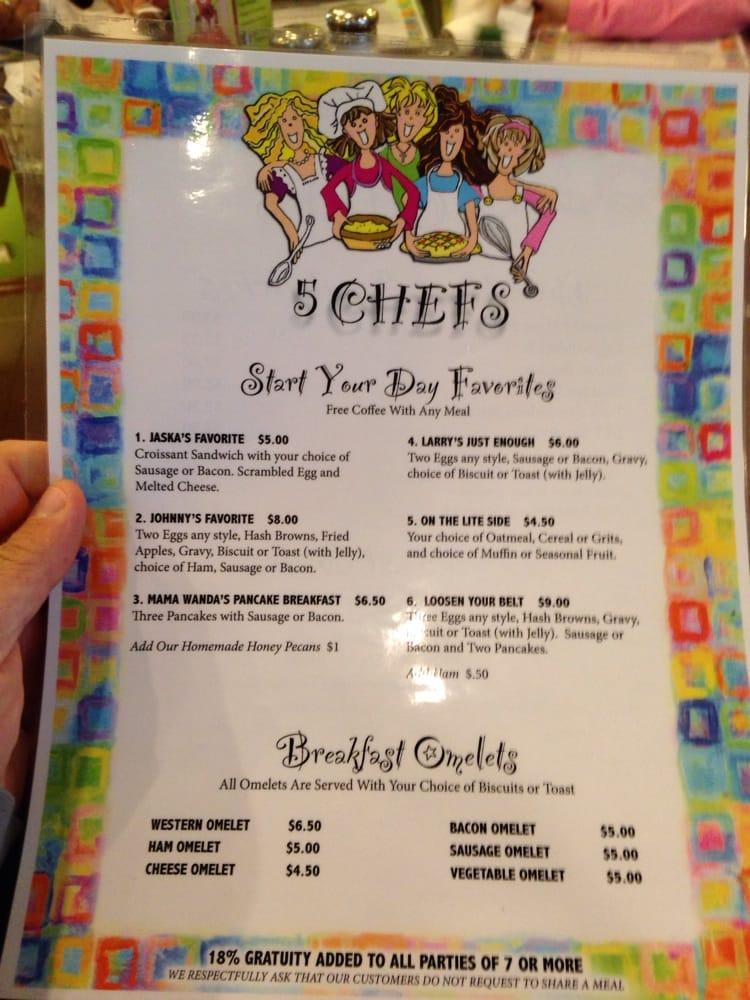 5 CHEFS
Start Your Day Favorites
Free Coffee With Any Meal
1. JASKA'S FAVORITE $5.00
Croissant Sandwich with your choice of
Sausage or Bacon. Scrambled Egg and
Melted Cheese.
2. JOHNNY'S FAVORITE $8.00
Two Eggs any style, Hash Browns, Fried
Apples, Gravy, Biscuit or Toast (with Jelly),
choice of Ham, Sausage or Bacon.
3. MAMA WANDA'S PANCAKE BREAKFAST $6.50
Three Pancakes with Sausage or Bacon.
Add Our Homemade Honey Pecans $1
4. LARRY'S JUST ENOUGH $6.00
Two Eggs any style, Sausage or Bacon, Gravy,
choice of Biscuit or Toast (with Jelly).
5. ON THE LITE SIDE $4.50
Your choice of Oatmeal, Cereal or Grits,
and choice of Muffin or Seasonal Fruit.
6. LOOSEN YOUR BELT $9.00
Three Eggs any style, Hash Browns, Gravy,
Biscuit or Toast (with Jelly). Sausage or
Bacon and Two Pancakes.
Add Ham $.50
Breakfast Omelets
All Omelets Are Served With Your Choice of Biscuits or Toast
WESTERN OMELET $6.50
HAM OMELET $5.00
CHEESE OMELET $4.50
BACON OMELET $5.00
SAUSAGE OMELET $5.00
VEGETABLE OMELET $5.00
18% GRATUITY ADDED TO ALL PARTIES OF 7 OR MORE
WE RESPECTFULLY ASK THAT OUR CUSTOMERS DO NOT REQUEST TO SHARE A MEAL